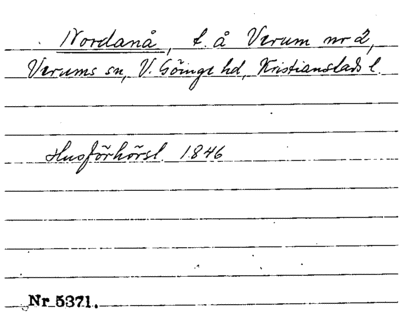 Nordanå, t. å Verum nr 2,
Verums sn, V. Göinge hd, Kristianstads l.
Husförhörsl. 1846
Nr 5371.